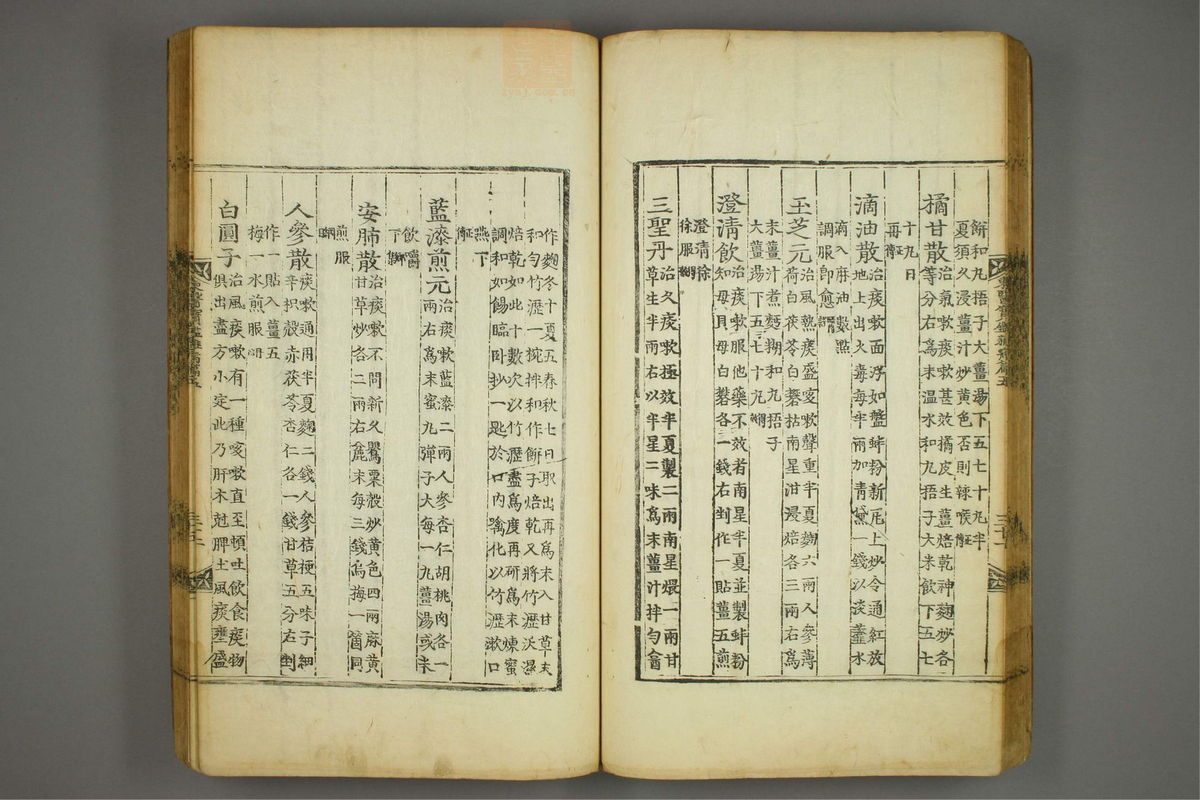 餠和丸梧子大薑湯下五七十丸半
夏須久浸薑汁炒黃色否則辣喉
橘甘散 治氣嗽痰嗽甚效橘皮生薑焙乾神麴炒各
等分右爲末溫水和丸梧子大米飮下五七
十丸日
再
滴油散 治痰嗽面浮如盤蚌粉新瓦上炒令通紅放
地上出火毒每半兩加靑黛一錢以淡虀水
滴入麻油數點
調服卽愈
玉芝元 治風熱痰盛咳嗽聲重半夏麴六兩人參薄
荷白茯苓白礬枯南星泔浸焙各三兩右爲
末薑汁煮麵糊和丸梧子
大薑湯下五七十丸
澄淸飮 治痰嗽服他藥不效者南星半夏並製蚌粉
知母貝母白礬各一錢右剉作一貼薑五煎
澄淸徐
徐服
三聖丹 治久痰嗽極效半夏製二兩南星煨一兩甘
草生半兩右以半星二味爲末薑汁拌勻盦
作麴冬十夏五春秋七日取出再爲末入甘草末
和勻竹瀝一椀拌和作餠子焙乾又將竹瀝沃濕
焙乾如此十數次以竹瀝盡爲度再硏爲末煉蜜
調和如餳臨臥抄一匙於口內噙化以竹瀝漱口
燕下
藍漆煎元 治痰嗽藍漆二兩人參杏仁胡桃肉各一
兩右爲末蜜丸彈子大每一丸薑湯或米
飮嚼
下
安肺散 治痰嗽不問新久罌粟殼炒黃色四兩麻黃
甘草炒各二兩右麁末每三錢烏梅一箇同
煎服
人參散 痰嗽通用半夏麴二錢人參桔梗五味子細
辛枳殼赤茯苓杏仁各一錢甘草五分右剉
作一貼入薑五
梅一水煎服
白圓子 治風痰嗽有一種咳嗽直至頓吐飮食痰物
俱出盡方小定此乃肝木尅脾土風痰壅盛